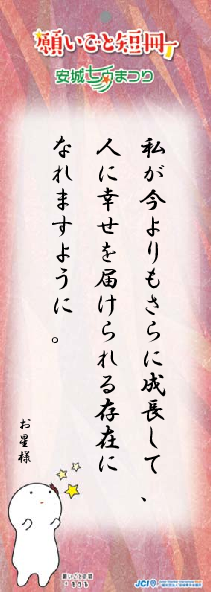 願いごと短冊
安城七夕まつり
私が今よりもさらに成長して、
人に幸せを届けられる存在に
なれますように。
お星様
願いごと短冊
JCI